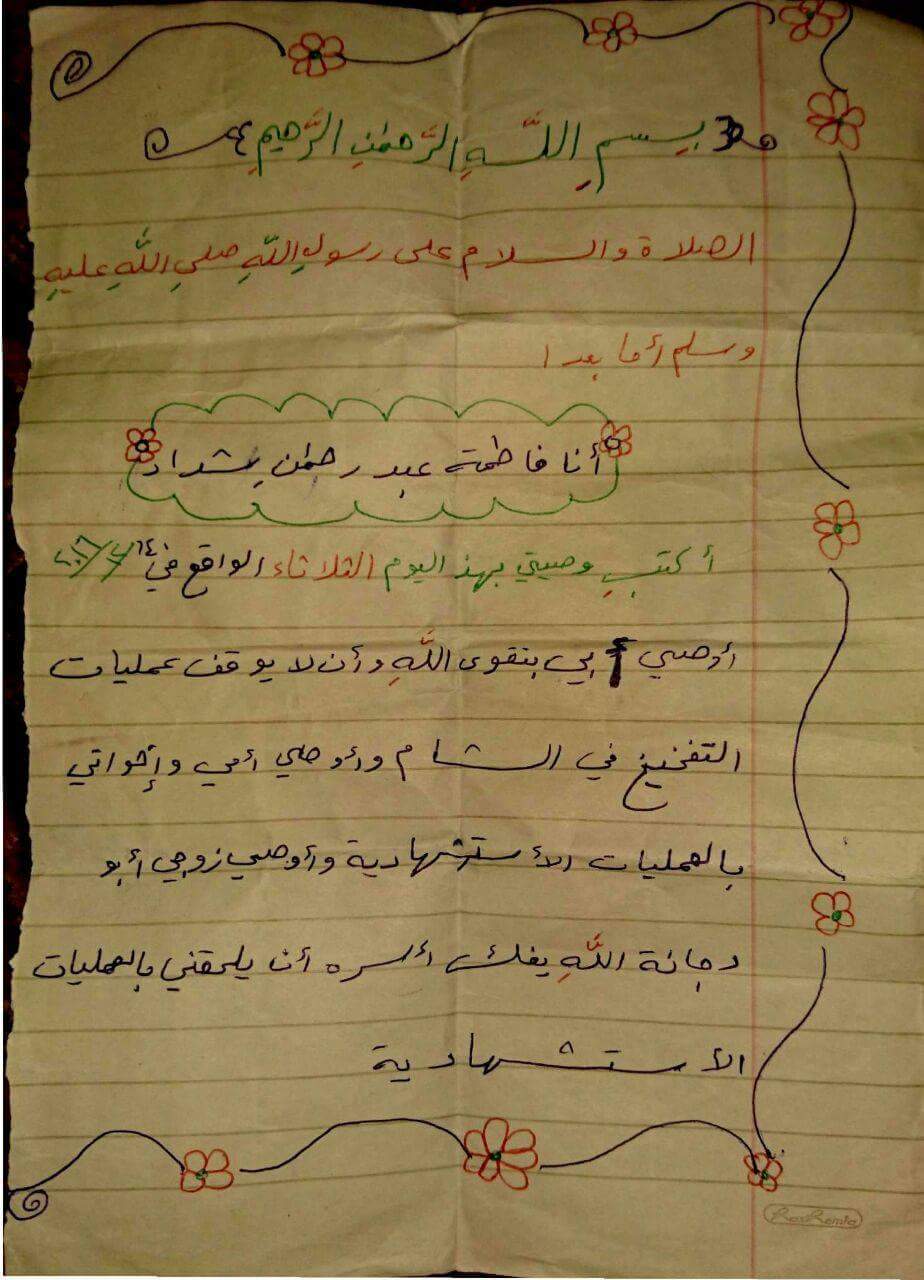 بِسمِ اللَّهِ الرَّحمٰنِ الرَّحيمِ
الصلاة والسلام على رسولِ اللَّهِ صلىِ اللَّهِ عليهِ
وسلم أما بعد ا
أنا فاطمة عبد رحمٰن شداد
أكتب وصيتي بهذ اليوم الثلاثاء الواقع في ١٤
أوصي أبي بتقوى اللَّهِ وأن لا يوقف عمليات
التفخيخ في الشام وأوصي أمي وإخواتي
بالعمليات الأستشهادية وأوصي زوجي أبو
دجانة اللَّهِ يفك أسره أن يلحقني بالعمليات
الأستشهادية